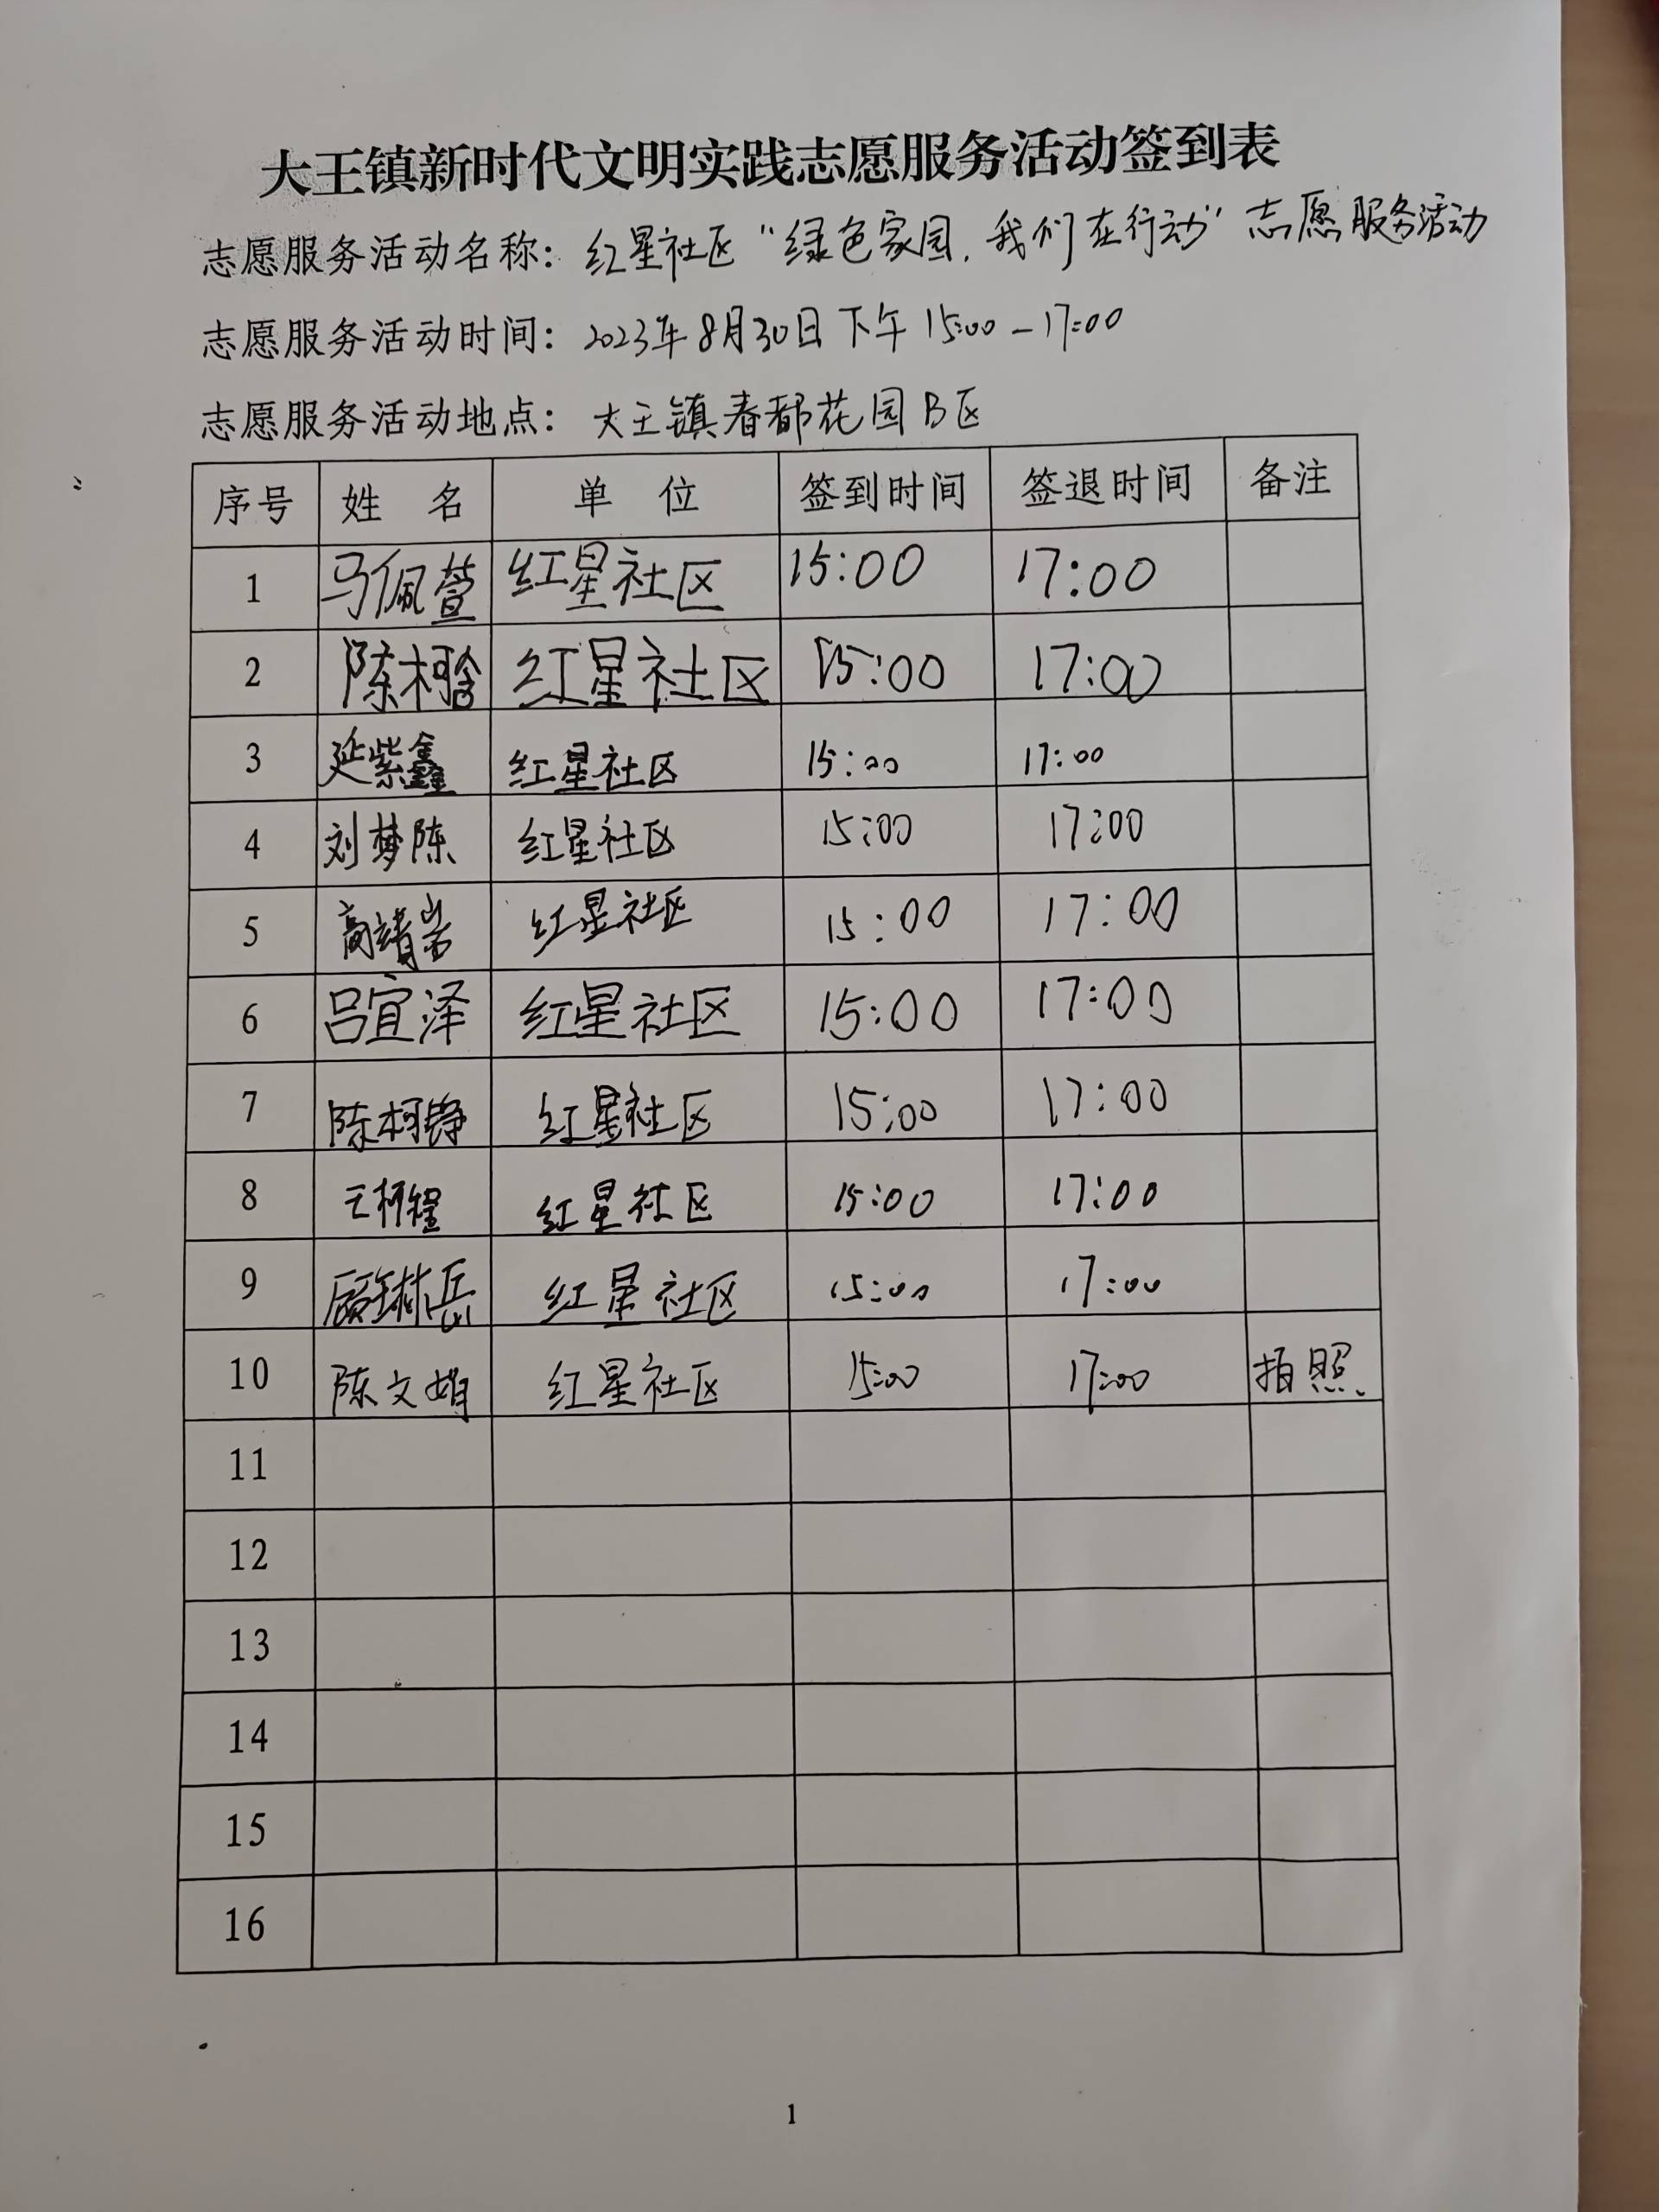 大王镇新时代文明实践志愿服务活动签到表
志愿服务活动名称：红星社区“绿色家园，我们在行动”志愿服务活动
志愿服务活动时间：2023年8月30日下午15:00－17:00
志愿服务活动地点：大王镇春都花园B区
序号 姓 名 单 位 签到时间 签退时间 备注
1 马佩萱 红星社区 15:00 17:00
2 陈柯晗 红星社区 15:00 17:00
3 延紫鑫 红星社区 15:00 17:00
4 刘梦陈 红星社区 15:00 17:00
5 高靖岩 红星社区 15:00 17:00
6 吕宜泽 红星社区 15:00 17:00
7 陈柯铮 红星社区 15:00 17:00
8 王柯程 红星社区 15:00 17:00
9 红星社区 15:00 17:00
10 陈文娟 红星社区 15:00 17:00 拍照
11
12
13
14
15
16
1